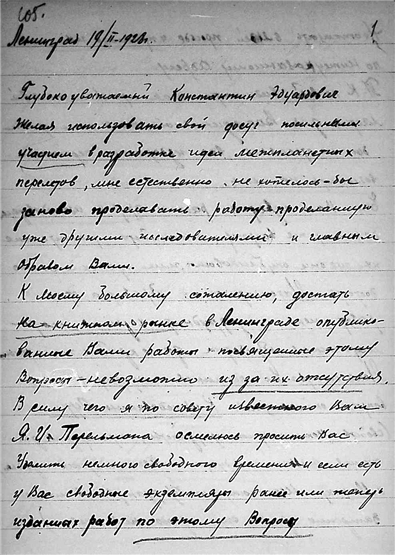 105.
1
Ленинград 19/II-192
Глубокоуважаемый Константин Эдуардович
Желая использовать свой досуг посильным
участием в разработке идеи межпланетных
перелетов, мне естественно не хотелось-бы
заново проделывать работу проделанную
уже другими исследователями и главным
образом Вами.
К моему большому сожалению, достать
на книжном рынке в Ленинграде опублико-
ванные Вами работы посвященные этому
вопросу - невозможно из за их отсутствия.
В силу чего я по совету известного Вам
Я. И. Перельмана осмелюсь просить Вас
уделить немного свободного времени и если есть
у Вас свободные экземпляры ранее или теперь
изданных работ по этому вопросу